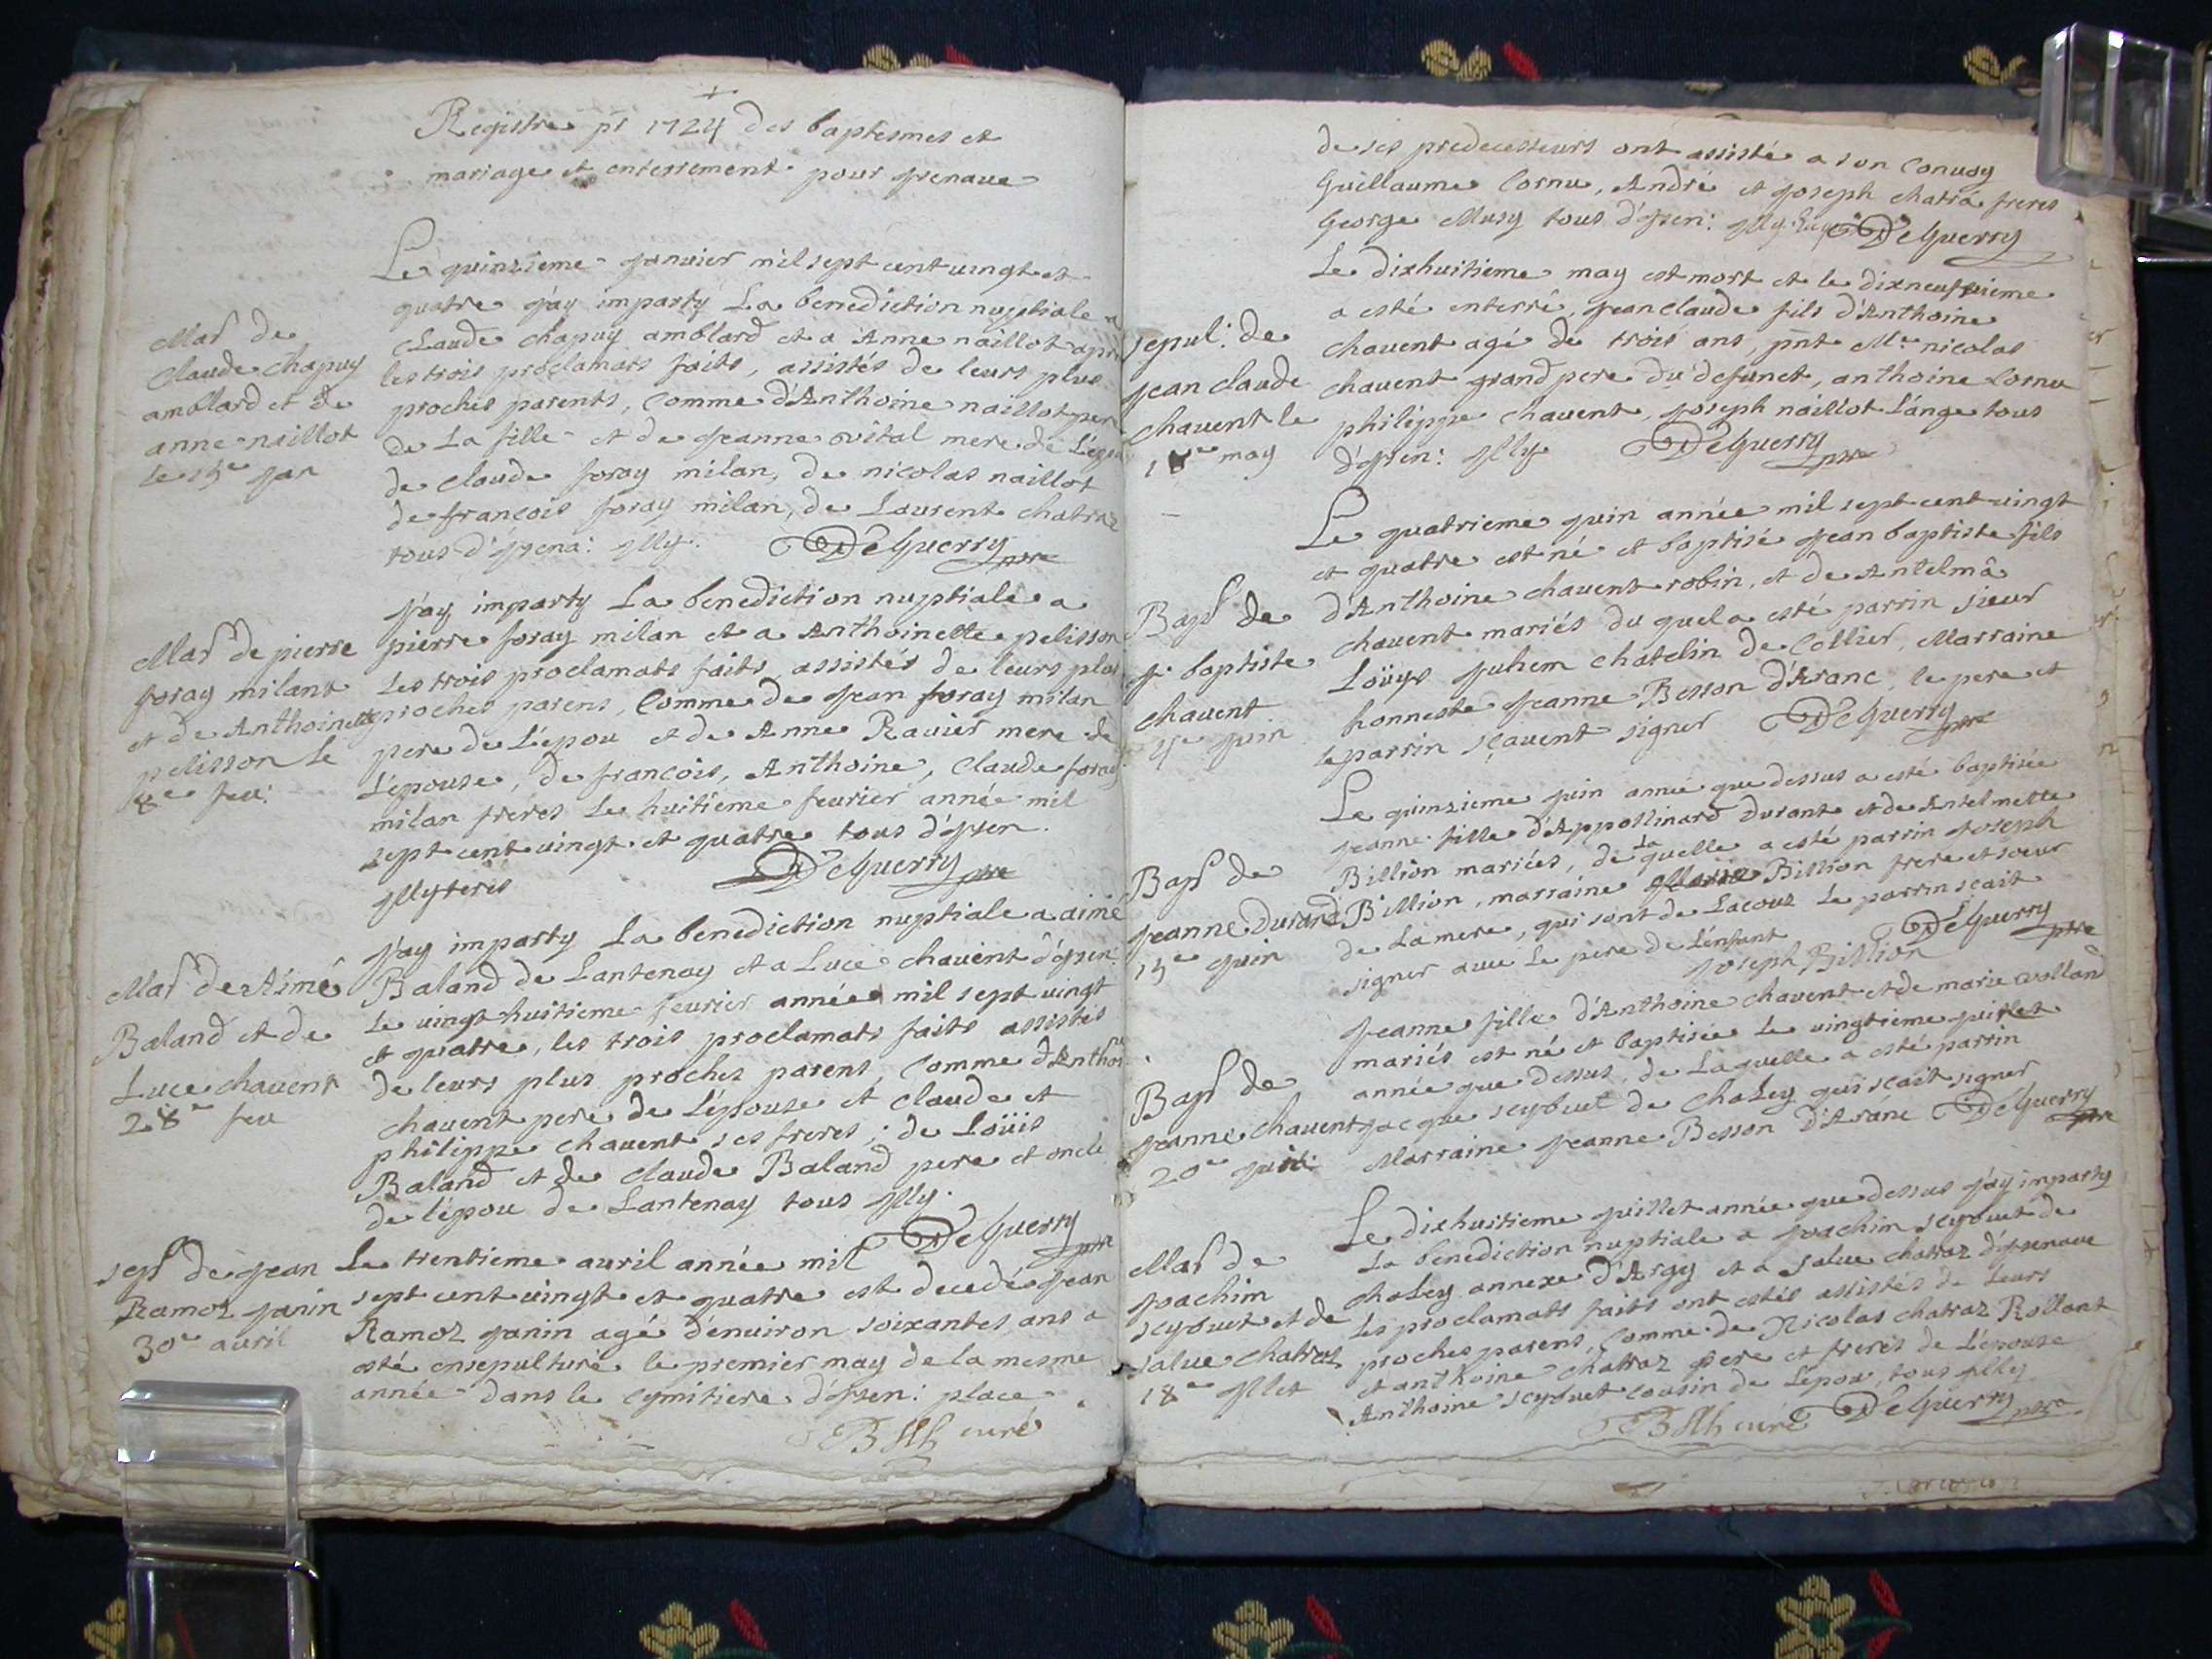 Registre pr 1724 des baptesmes et
mariage et enterrement pour jzenaue
Mar de
Claude chapuy
amblard et de
anne naillot
le 15e jan
Le quinzieme januier mil sept cent uingt et
quatre j'ay imparty La benediction nuptiale a
Claude chapuy amblard et a Anne naillot apr
les trois proclamats faits, assistés de leurs plus
proches parents, Comme d'Anthoine naillot pere
de La fille et de jeanne vital mere de
de claude foray milan, de nicolas naillot
de francois foray milan, de Laurent chatraz
tous d'jzena: jlly. DeGuerry pre
Mar de pierre
foray milant
et de Anthoinette
pelisson Le
8e feu:
j'ay imparty La benediction nuptiale a
pierre foray milan et a Anthoinette pelisson
Les trois proclamats faits, assistés de leurs plus
proches parens, Comme de jean foray milan
pere de L'epou et de Anne Rauier mere de
L'epouse, de francois, Anthoine, Claude foray
milan freres Le huitieme feurier année mil
sept cent uingt et quatre tous d'jzen.
jllyteres DeGuerry pre
Mar de Aimé
Baland et de
Luce chauent
28e feu
j'ay imparty La benediction nuptiale a aimé
Baland de Lantenay et a Luce chauent d'jzen:
Le uingt huitieme feurier année mil sept uingt
et quatre, les trois proclamats faits assistés
de leurs plus proches parens, Comme d'Anthoi
chauent pere de L'epouse et claude et
philippe chauent ses freres; de Loüis
Baland et de Claude Baland pere et oncle
de l'epou de Lantenay tous jlly.
DeGuerry pre
sep de jean
Ramoz janin
30e auril
Le trentieme auril année mil
sept cent uingt et quatre est decedé jean
Ramoz janin agé d'enuiron soixantes ans a
esté ensepulturé le premier may de la mesme
année dans le cymitiere d'jzen: place
curé
de ses predecesseurs ont assisté a son Conuoy
Guillaume Cornu, André et joseph chatra freres
George Musy tous d'jzen: jlly DeGuerry
sepul: de
jean claude
chauent le
may
Le dixhuitieme may est mort et le dixneufuieme
a esté enterré, jean claude fils d'Anthoine
chauent agé de trois ans, pnt Me nicolas
chauent grand pere du defunct, anthoine Cornu
philippe chauent, joseph naillot L'ange tous
d'jzen: jlly DeGuerry pre
Bap de
j baptiste
chauent
4e juin
Le quatrieme juin année mil sept cent uingt
et quatre est né et baptisé jean baptiste fils
d'Anthoine chauent robin, et de Antelma
chauent mariés du quel a esté parrin sieur
Loüys juhem chatelin de Collier, Marraine
honneste jeanne Besson d'Aranc, le pere et
le parrin sçauent signer DeGuerry pre
Bap de
jeanne durand
15e juin
Le quinzieme juin année que dessus a esté baptisée
jeanne fille d'Appollinard Durant et de Antelmette
Billion mariées, de La quelle a esté parrin joseph
Billion, marraine Billion frere et soeur
de La mere, qui sont de Lacouz Le parrin scait
signer auec Le pere de L'enfant DeGuerry pre
joseph Billion
Bap de
jeanne chauent
20e juil:
jeanne fille d'Anthoine chauent et de marie volland
mariés est né et baptisée Le uingtieme juillet
année que dessus, de Laquelle a esté parrin
jacque seybuet de Choley qui scait signer
Marraine jeanne Besson d'Arane DeGuerry pre
Mar de
joachim
seybuet et de
salue chatraz
18e jllet
Le dixhuitieme juillet année que dessus j'ay imparty
La benediction nuptiale a joachim seybuet de
choley annexe d'Argy et a salue chatraz d'jzenaue
Les proclamats faits ont estés assistés de Leurs
proches parens, Comme de Nicolas chatraz Rollant
et anthoine chatraz pere et freres de L'epouse
Anthoine seybuet cousin de L'epou, tous jlly
curé DeGuerry pre